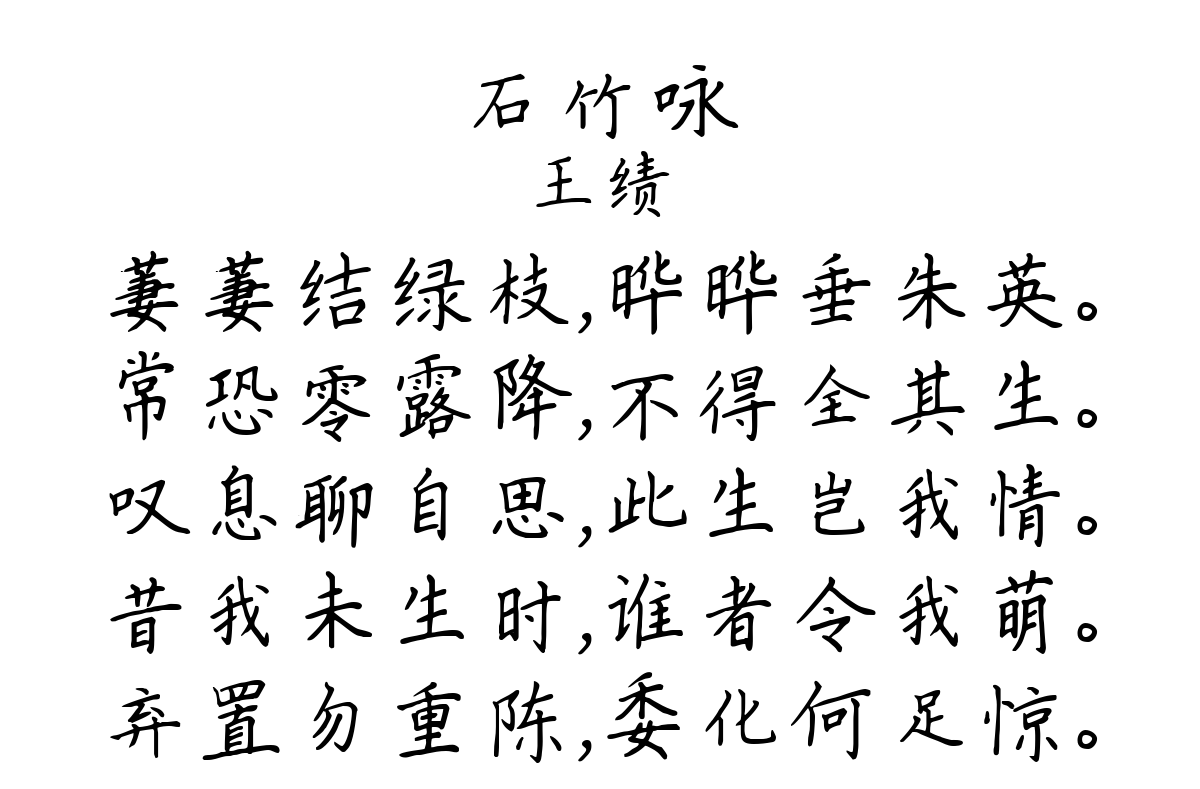 石竹咏
王绩
萋萋结绿枝,晔晔垂朱英。
常恐零露降,不得全其生。
叹息聊自思,此生岂我情。
昔我未生时,谁者令我萌。
弃置勿重陈,委化何足惊。